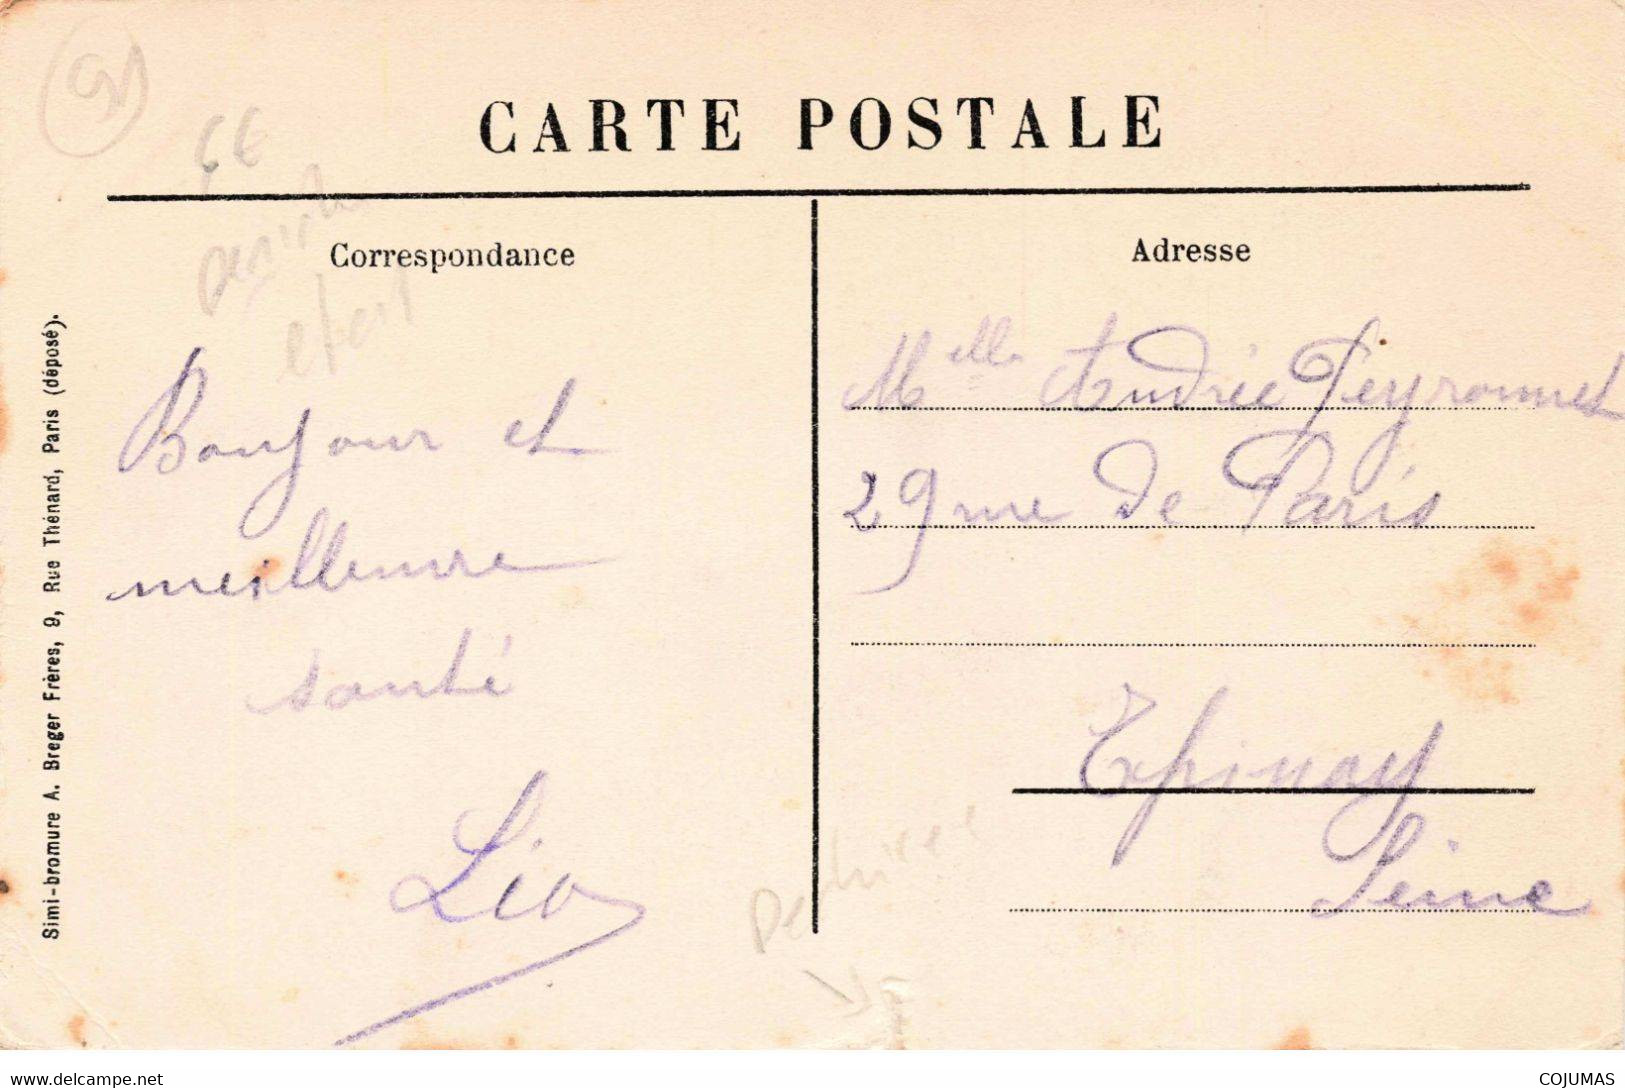 91
CARTE POSTALE
Correspondance
Adresse
Simi-bromure A. Breger Frères, 9, Rue Thénard, Paris (déposé).
Bonjour et
meilleure
santé
Léo
Melle Andrée Peyronnet
29 rue de Paris
Epinay
Seine
www.delcampe.net
COJUMAS